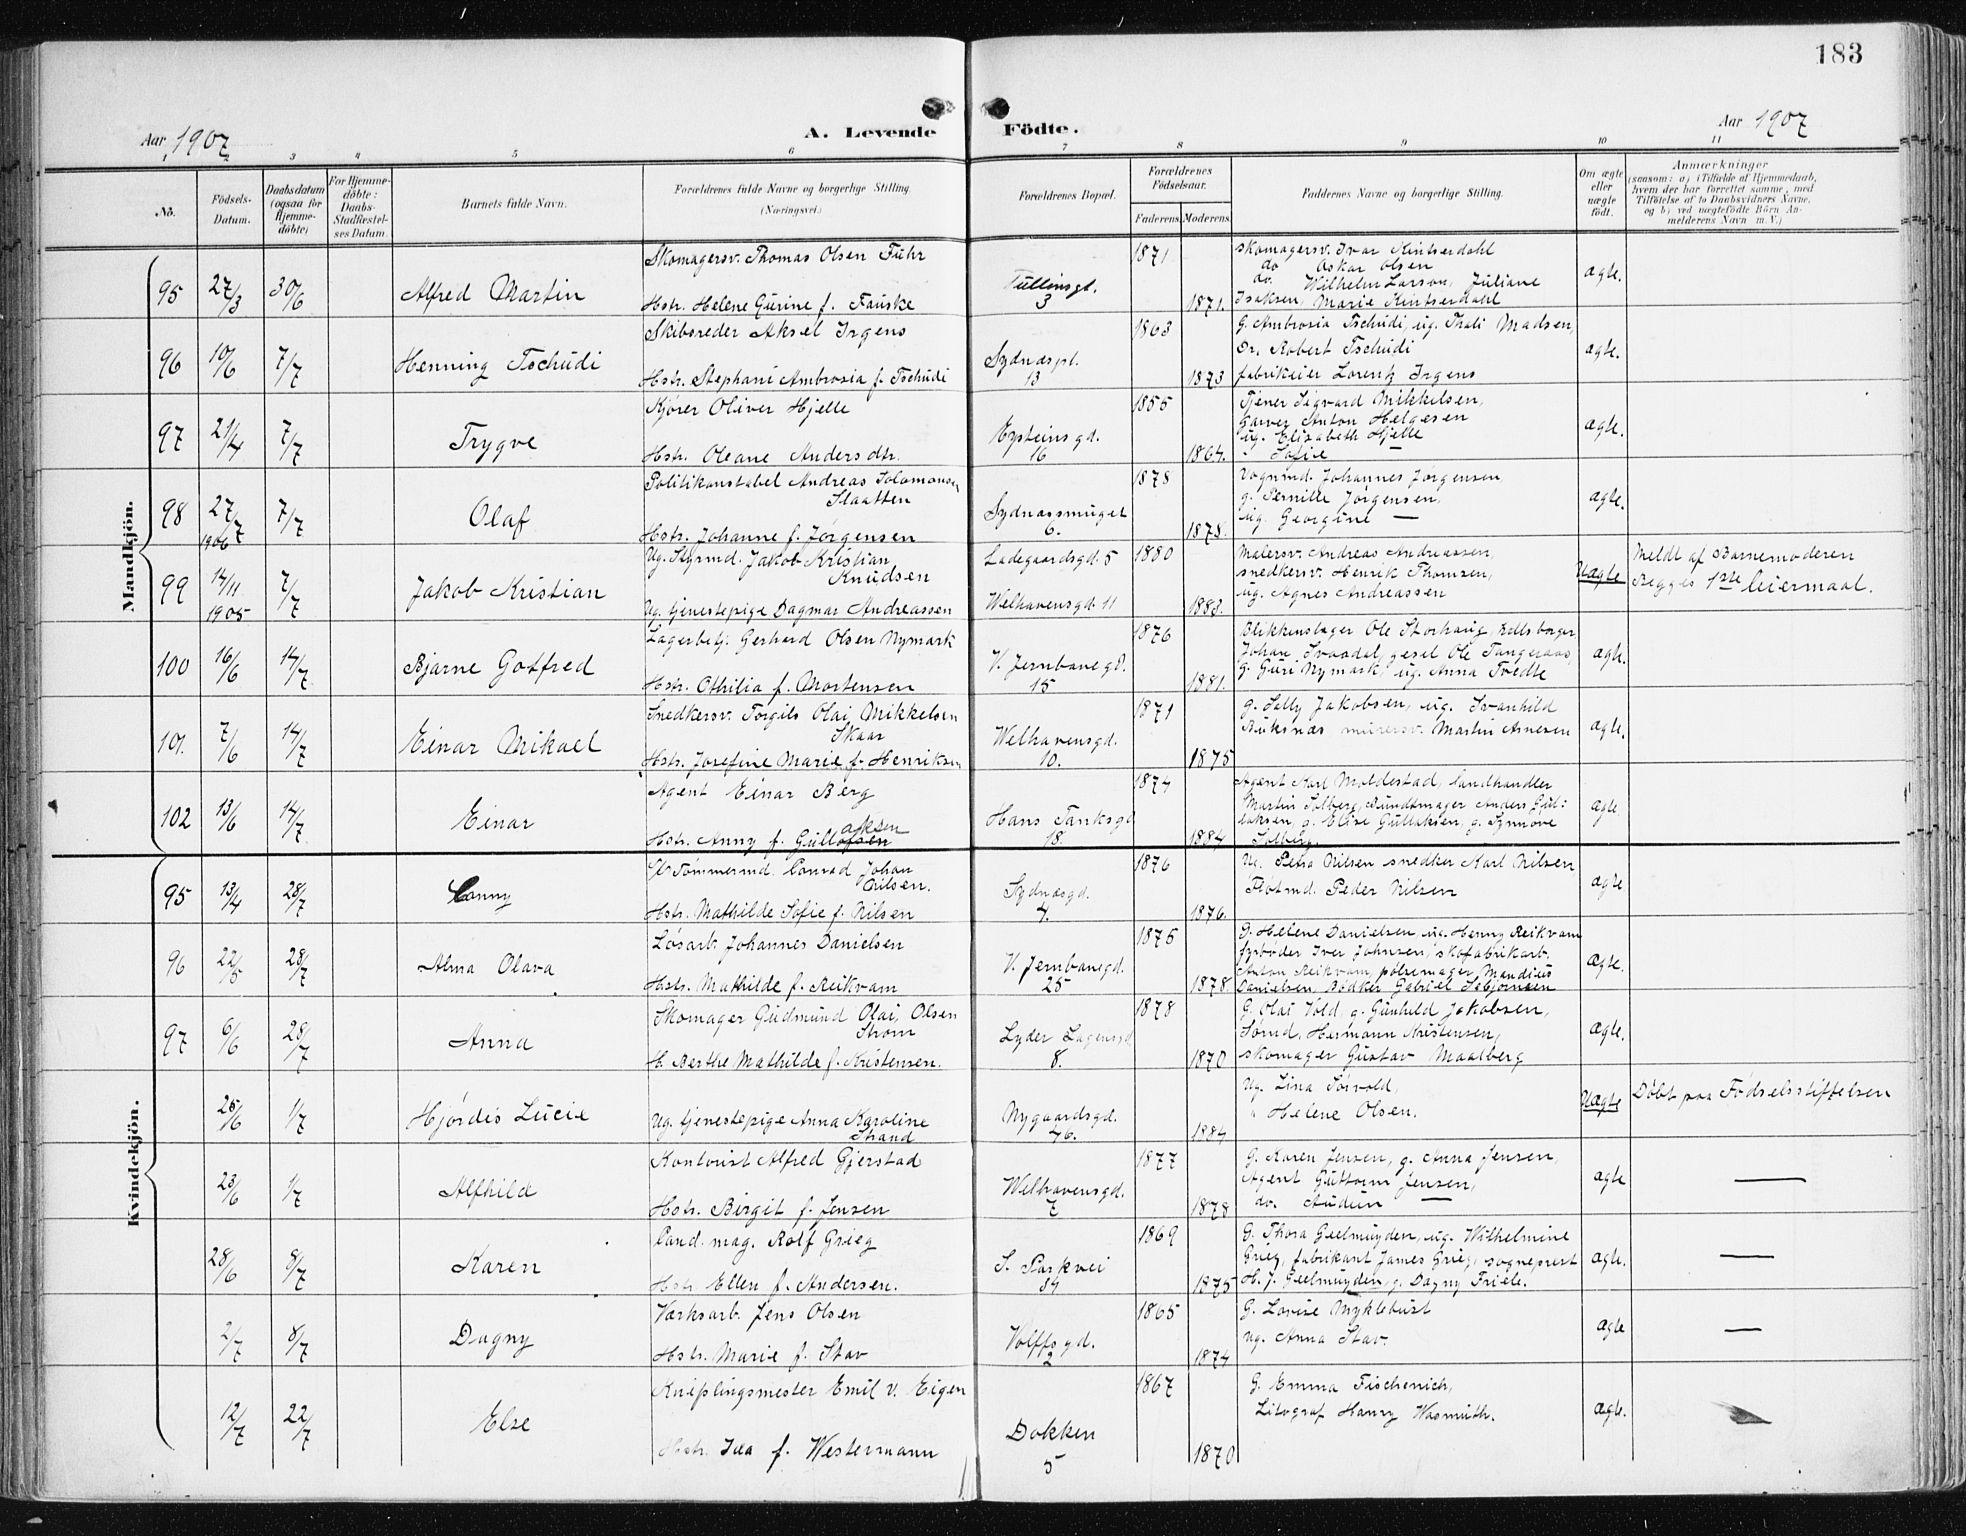 183
Aar 1907 A. Levende Födte. Aar 1907
1 2 3 4 5 6 7 8 9 10 11
No.
Födsels-Datum.
Daabsdatum (ogsaa for Hjemmedöbte)
For Hjemmedöbte: Daabs-Stadfæstelses Datum.
Barnets fulde Navn.
Forældrenes fulde Navne og borgerlige Stilling. (Næringsvei.)
Forældrenes Bopæl.
Forældrenes Födselsaar.
Faderens. Moderens.
Faddernes Navne og borgerlige Stilling.
Om ægte eller uægte födt.
Anmærkninger
(saasom: a) i Tilfælde af Hjemmedaab, hvem der har forrettet samme, med Tilföielse af to Daabsvidners Navne, og b) ved uægtefödte Börn Anmelderens Navn m. V.)
Mandkjön.
95 27/3 30/6 Alfred Martin
Skomagersv. Thomas Olsen Fuhr
Hstr. Helene Gurine f. Fauske
Tullinsgt. 3
1871 1871.
Skomagersv. Ivar Kintserdahl
do Oskar Olsen
do. Wilhelm Larson, Juliane
Isaksen, Marie Kintserdahl
ægte.
96 10/6 7/7 Henning Tschudi
Skibsreder Aksel Irgens
Hstr. Stephani Ambrosia f. Tschudi
Sydnæspl. 13
1863 1873
G. Ambrosia Tschudi, ug. Thali Madsen,
Dr. Robert Tschudi
fabrikeier Lorentz Irgens
ægte.
97 21/4 7/7 Trygve
Kjører Oliver Hjelle
Hstr. Oleane Andersdtr.
Eysteinsgd. 16
1855 1864.
Tjener Sigvard Mikkelsen,
Garver Anton Helgesen
ug. Elisabeth Hjelle
- Sofie —
ægte.
98 27/7 1906 7/7 Olaf
Politikonstabel Andreas Solomonsen
Slaatten
Hstr. Johanne f. Jørgensen
Sydnæssmuget 6.
1878 1878.
Vognmd. Johannes Jørgensen
g. Pernille Jørgensen,
ug. Georgine —
ægte.
99 14/11 1905 7/7 Jakob Kristian
Ug. Styrmd. Jakob Kristian
Knudsen
Ug. tjenestepige Dagmar Andreassen
Ladegaardsgd. 5
Welhavensgd. 11
1880 1883.
Malersv. Andreas Andreassen,
snedkersv. Henrik Thomsen,
ug. Agnes Andreassen
Uægte
Meldt af Barnemoderen
Begges 1ste leiermaal.
100 16/6 14/7 Bjarne Gotfred
Lagerbetj. Gerhard Olsen Nymark
Hstr. Othilia f. Mortensen
V. Jernbanegd. 15
1876 1881.
Blikkenslager Ole Storhaug,
Johan gesel Ole Tangeraas,
G. Guri Nymark, ug. Anna Tvedte
ægte.
101. 7/6 14/7 Einar Mikael
Snedkersv. Torgils Olai Mikkelsen
Skaar
Hstr. Josefine Marie f. Henriksen
Welhavensgd. 10.
1871 1875
g. Sally Jakobsen, ug. Svanhild
Buksnæs murersv. Martin Arnesen
ægte.
102 13/6 14/7 Einar
Agent Einar Berg
Hstr. Anny f. Gullaksen
Hans Tanksgd 18.
1874 1884
Agent Karl Moldestad, landhandler
Martin Solberg, Bundtmager Anders Gul:
laksen, g. Elise Gullaksen, g. Synnöve
Solberg.
ægte
Kvindekjön.
95 13/4 28/7 Conny
Tømmermd. Conrad Johan
Nilsen.
Hstr. Mathilde Sofie f. Nilsen
Sydnæsgd. 4.
1876 1876.
Ug. Petra Nilsen snedker Karl Nilsen
Fløtmd. Peder Nilsen
ægte
96 22/5 28/7 Alma Olava
Løsarb. Johannes Danielsen
Hstr. Mathilde f. Reikvam
V. Jernbanegd. 25
1875 1878.
G. Helene Danielsen, ug. Henny Reikvam
fyrbøder Iver Johnsen, skofabrikarb.
Anton Reikvam, pølsemager Mandius
Danielsen Bødker Gabriel Sebjørnsen
ægte.
97 6/6 28/7 Anna
Skomager Gudmund Olai Olsen
Strøm
H. Berthe Mathilde f. Kristensen.
Lyder Sagensgd 8.
1878 1870
G. Olai Vold, g. Gunhild Jakobsen,
Sømd. Hermann Kristensen,
skomager Gustav Maalberg
ægte.
25/6 1/7 Hjørdis Lucie
Ug. tjenestepige Anna Karoline
Strand
Nygaardsgd. 46.
1884
Ug. Lina Sørvold,
" Helene Olsen.
Uægte
Döbt paa Födselsstiftelsen
23/6 1/7 Alfhild
Kontorist Alfred Gjerstad
Hstr. Birgit f. Jensen
Welhavensgd. 7
1877 1878
G. Karen Jensen, g. Anna Jensen,
Agent Guttorm Jensen,
do. Audun —
ægte —
28/6 8/7 Karen
Cand. mag. Rolf Grieg
Hstr. Ellen f. Andersen.
S. Parkvei 34
1869 1875
G. Thora Geelmuyden, ug. Wilhelmine
Grieg, fabrikant James Grieg, sogneprest
H. J. Geelmuyden, g. Dagny Friele.
ægte. —
2/7 8/7 Dagny
Værksarb. Jens Olsen
Hstr. Marie f. Stav
Wolffsgd. 2
1865 1874
G. Lovise Myklebust
Ug. Anna Stav.
ægte —
12/7 22/7 Else
Kniplingsmester Emil v. Eigen
Hstr. Ida f. Westermann
Dokken 5
1867 1870
G. Emma Fischenich,
Litograf Hanry Wasmuth.
ægte.